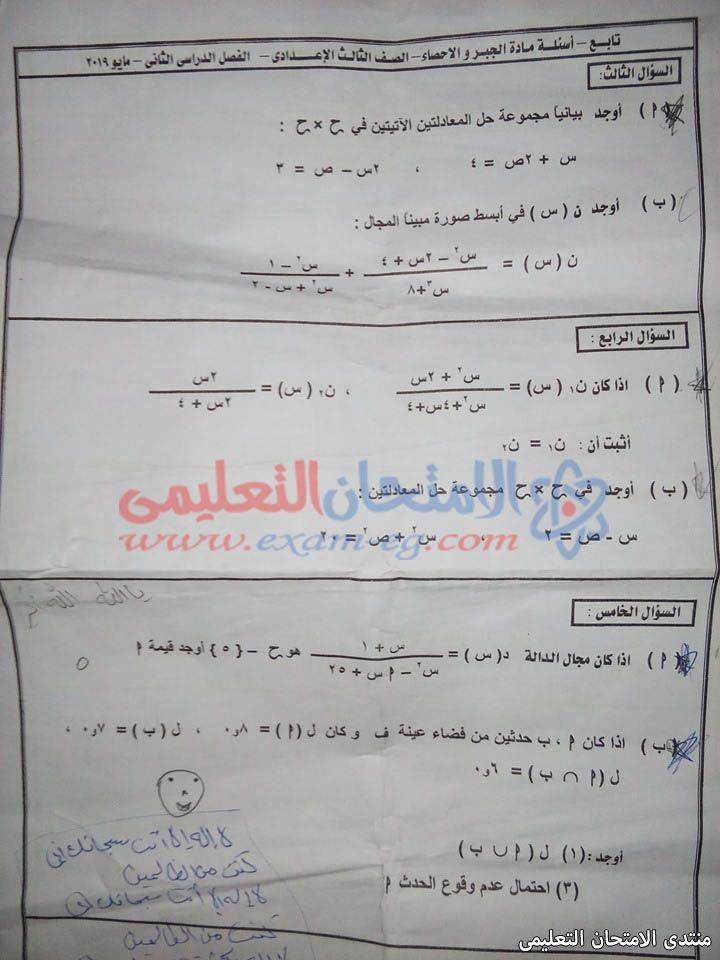 تابع – أسئلة مادة الجبر و الاحصاء – الصف الثالث الإعدادى – الفصل الدراسى الثانى – مايو ٢٠١٩
السؤال الثالث:
( ٩ ) أوجد بيانياً مجموعة حل المعادلتين الآتيتين في ح × ح :
س + ٢ص = ٤ ، ٢س – ص = ٣
( ب ) أوجد ن ( س ) في أبسط صورة مبيناً المجال :
ن ( س ) = (س٢ – ٢س + ٤)/(س٣ + ٨) + (س٢ – ١)/(س٢ + س - ٢)
السؤال الرابع :
( ٩ ) اذا كان ن١ ( س) = (س٢ + ٢س)/(س٢ +٤س+٤) ، ن٢ ( س) = ٢س/(٢س + ٤)
أثبت أن : ن١ = ن٢
( ب ) أوجد في ح × ح مجموعة حل المعادلتين :
س - ص = ٢ ، س٢ + ص٢ = ٢٠
الامتحان التعليمى
www.exam-eg.com
السؤال الخامس :
يا الله الله
( ٩ ) اذا كان مجال الدالة د( س ) = (س + ١)/(س٢ – ٩ س + ٢٥) هو ح – { ٥ } أوجد قيمة ٩
٥
( ب ) اذا كان ٩ ، ب حدثين من فضاء عينة ف و كان ل ( ٩ ) = ٠,٨ ، ل ( ب ) = ٠,٧ ،
ل ( ٩ ∩ ب ) = ٠,٦
أوجد : (١) ل ( ٩ ∪ ب )
(٣) احتمال عدم وقوع الحدث ٩
لا إله إلا أنت سبحانك إنى
كنت من الظالمين
لا إله إلا أنت سبحانك إنى
كنت من الظالمين
منتدى الامتحان التعليمى